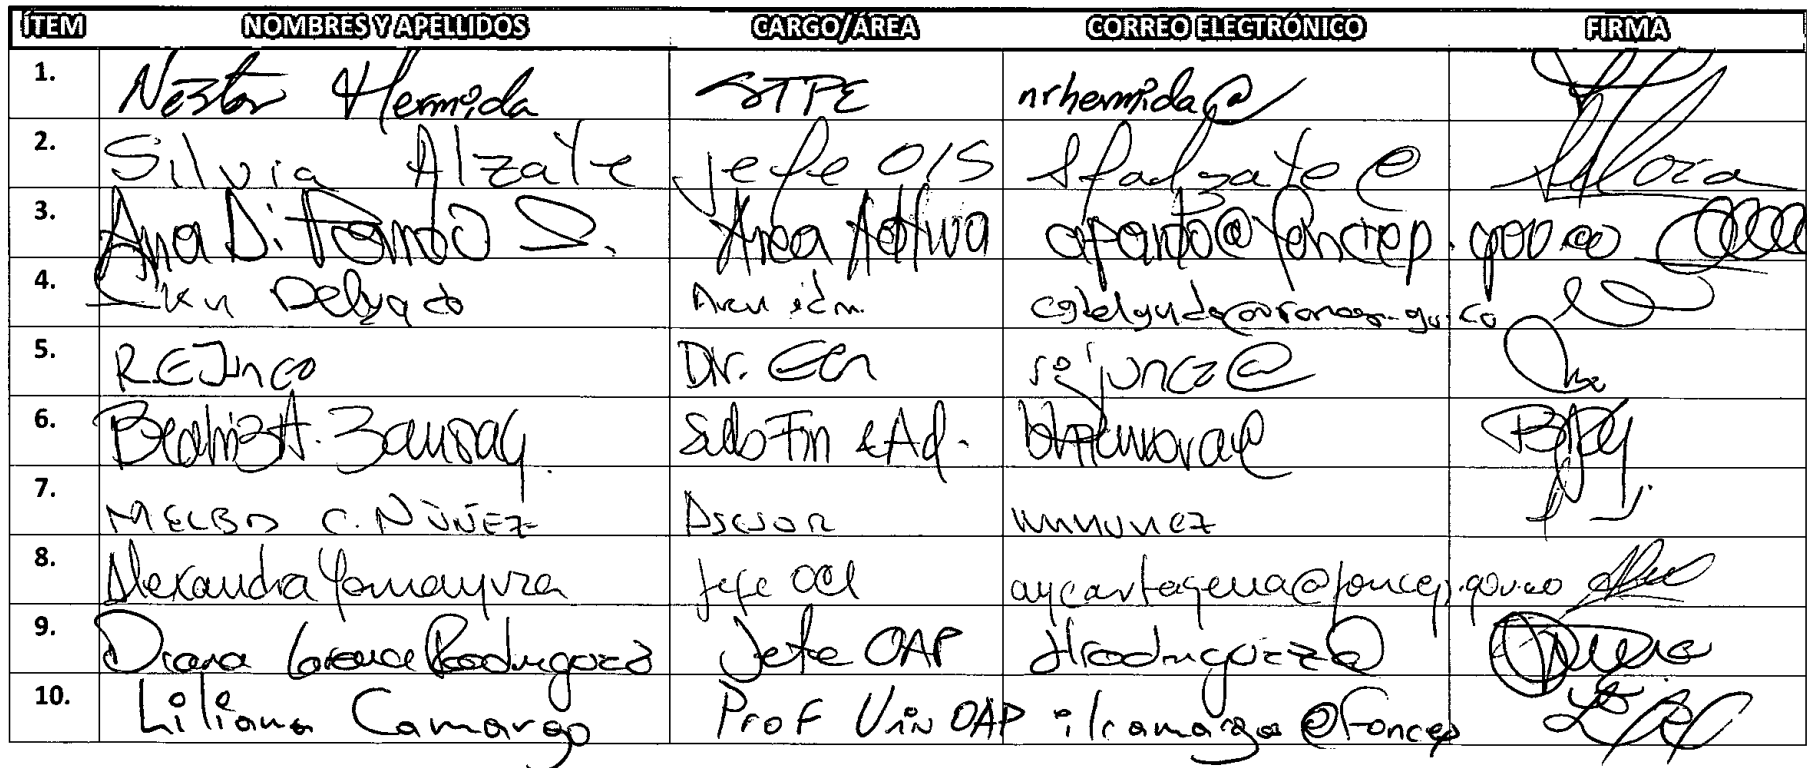 ÍTEM NOMBRES Y APELLIDOS CARGO/ÁREA CORREO ELECTRÓNICO FIRMA
1. Nestor Hermida STPE nrhermida@
2. Silvia Alzate Jefe OIS sfalzate@
3. Ana Di Pardo S. Área Adtiva apardo@foncep.gov.co
4. Delgado Area Adm.
5. Dir.
6. Beatriz A. SubFin & Ad.
7. MELBA C. NÚÑEZ Asesor mnunez
8. Alexandra Yomayuza Jefe OCI aycartagena@foncep.gov.co
9. Diana Lorena Rodríguez Z Jefe OAP dlrodriguezz@
10. Liliana Camargo Prof Univ OAP ilcamargo@foncep